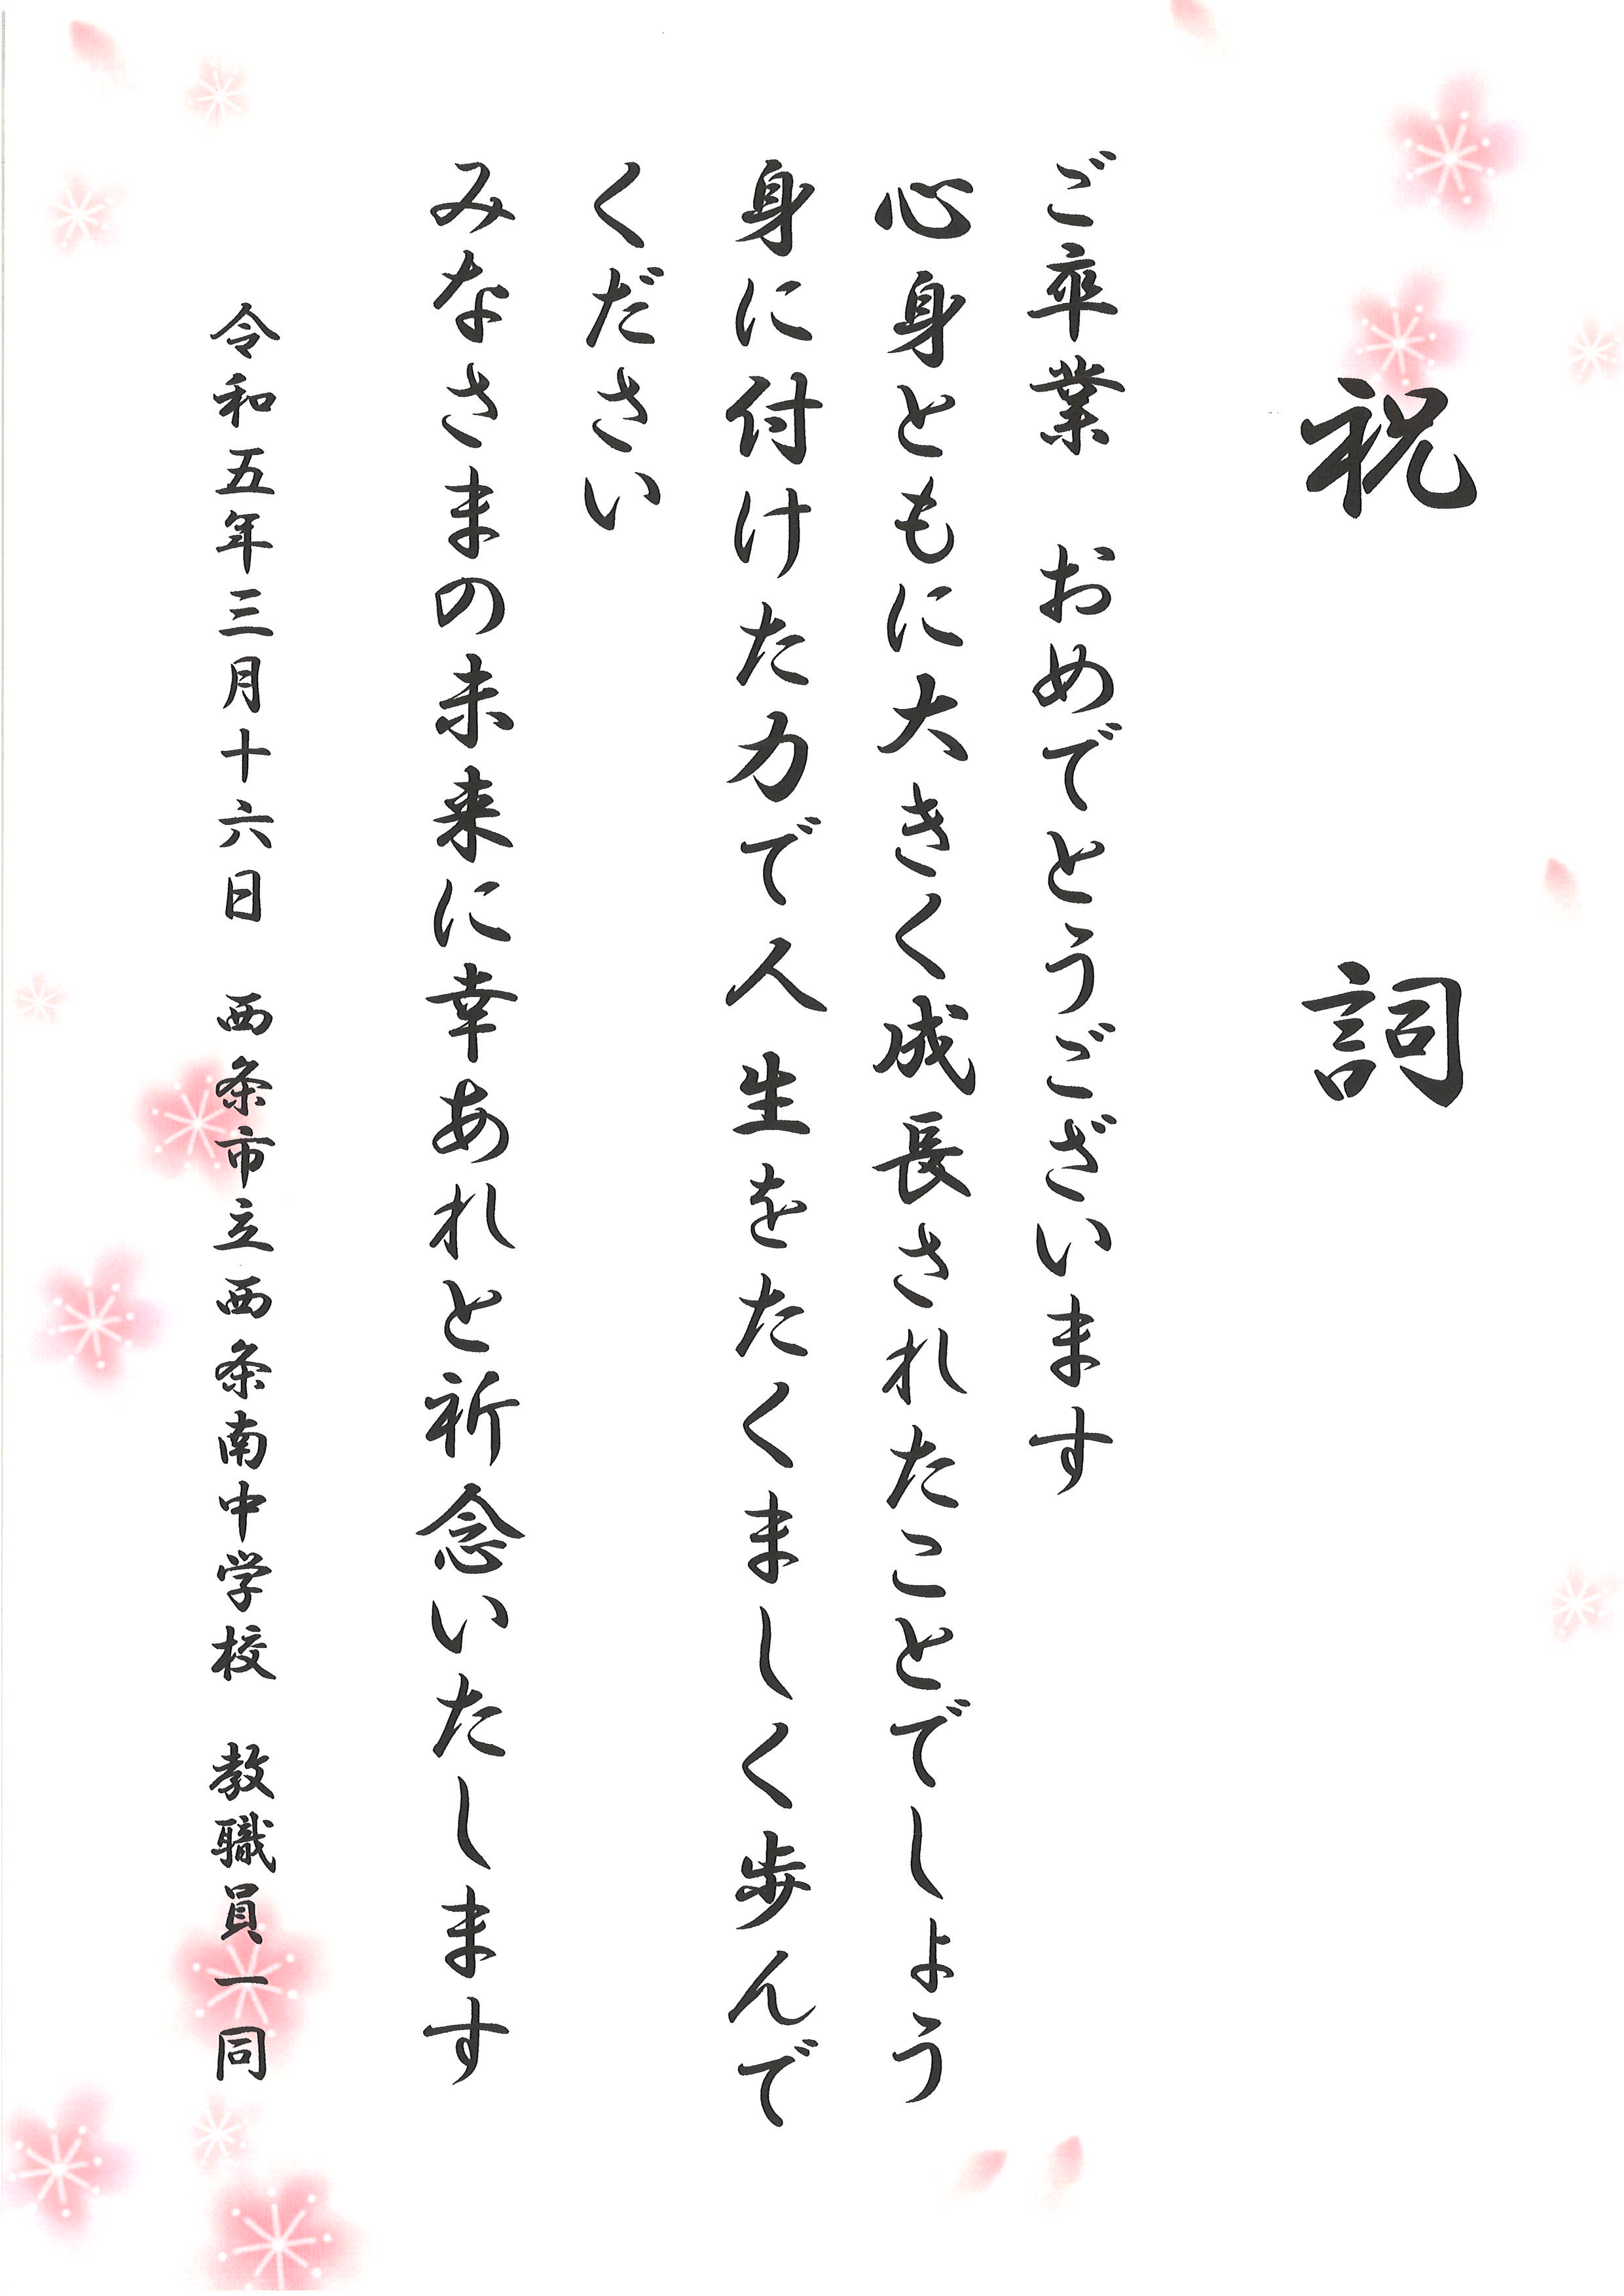 祝　詞
ご卒業　おめでとうございます
心身ともに大きく成長されたことでしょう
身に付けた力で人生をたくましく歩んで
ください
みなさまの未来に幸あれと祈念いたします
令和五年三月十六日　西条市立西条南中学校　教職員一同